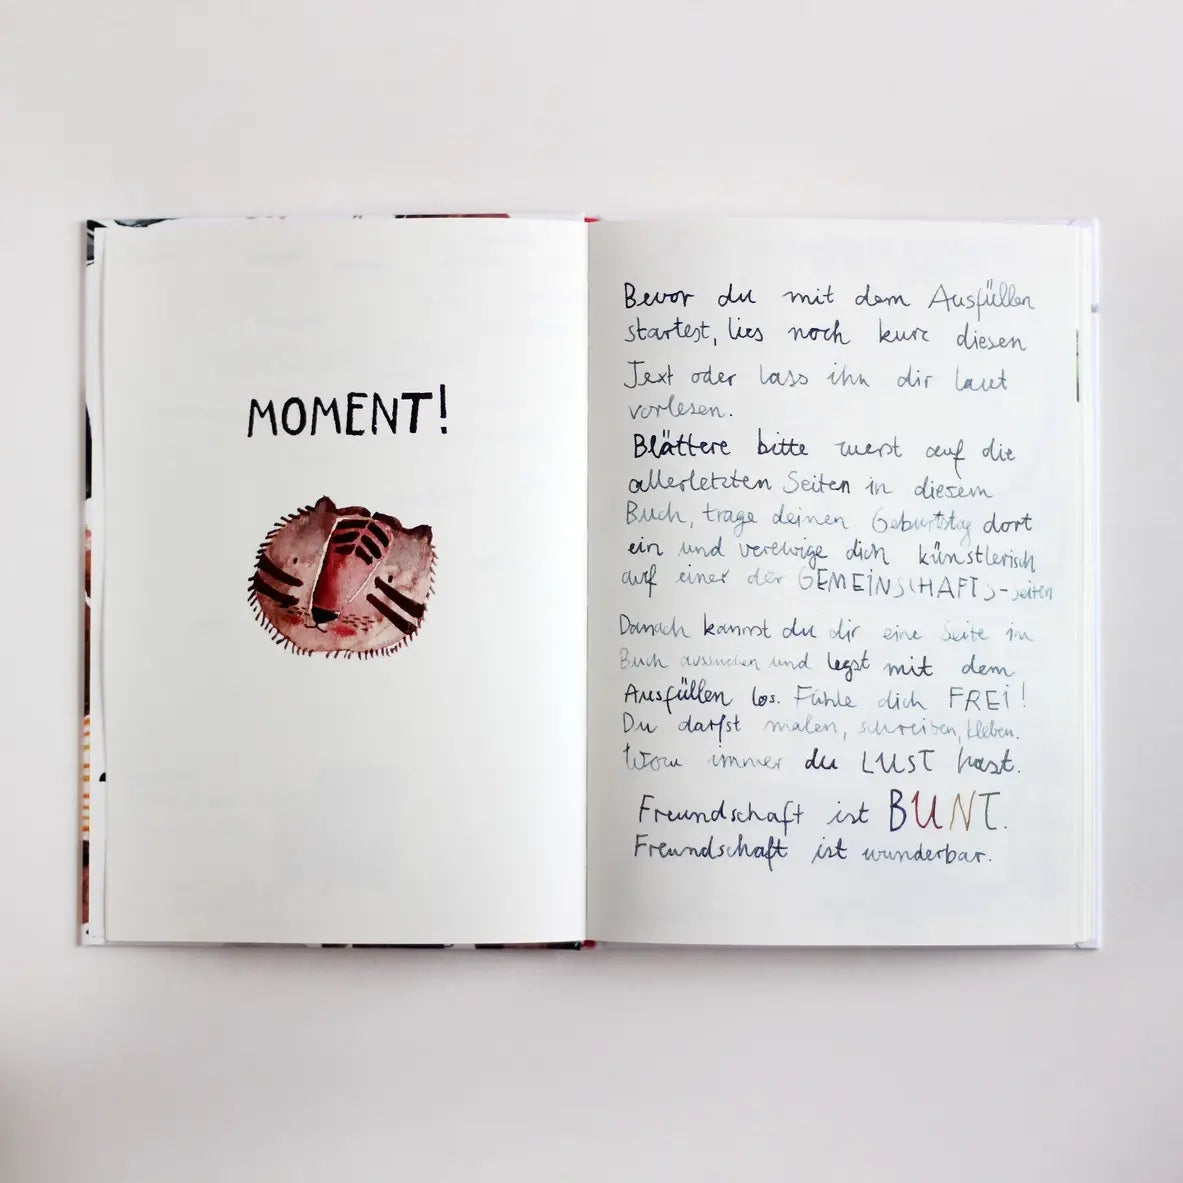 MOMENT!
Bevor du mit dem Ausfüllen
startest, lies noch kurz diesen
Text oder lass ihn dir laut
vorlesen.
Blättere bitte zuerst auf die
allerletzten Seiten in diesem
Buch, trage deinen Geburtstag dort
ein und verewige dich künstlerisch
auf einer der GEMEINSCHAFTS-Seiten
Danach kannst du dir eine Seite im
Buch aussuchen und legst mit dem
Ausfüllen los. Fühle dich FREI!
Du darfst malen, schreiben, kleben.
Wozu immer du LUST hast.
Freundschaft ist BUNT.
Freundschaft ist wunderbar.